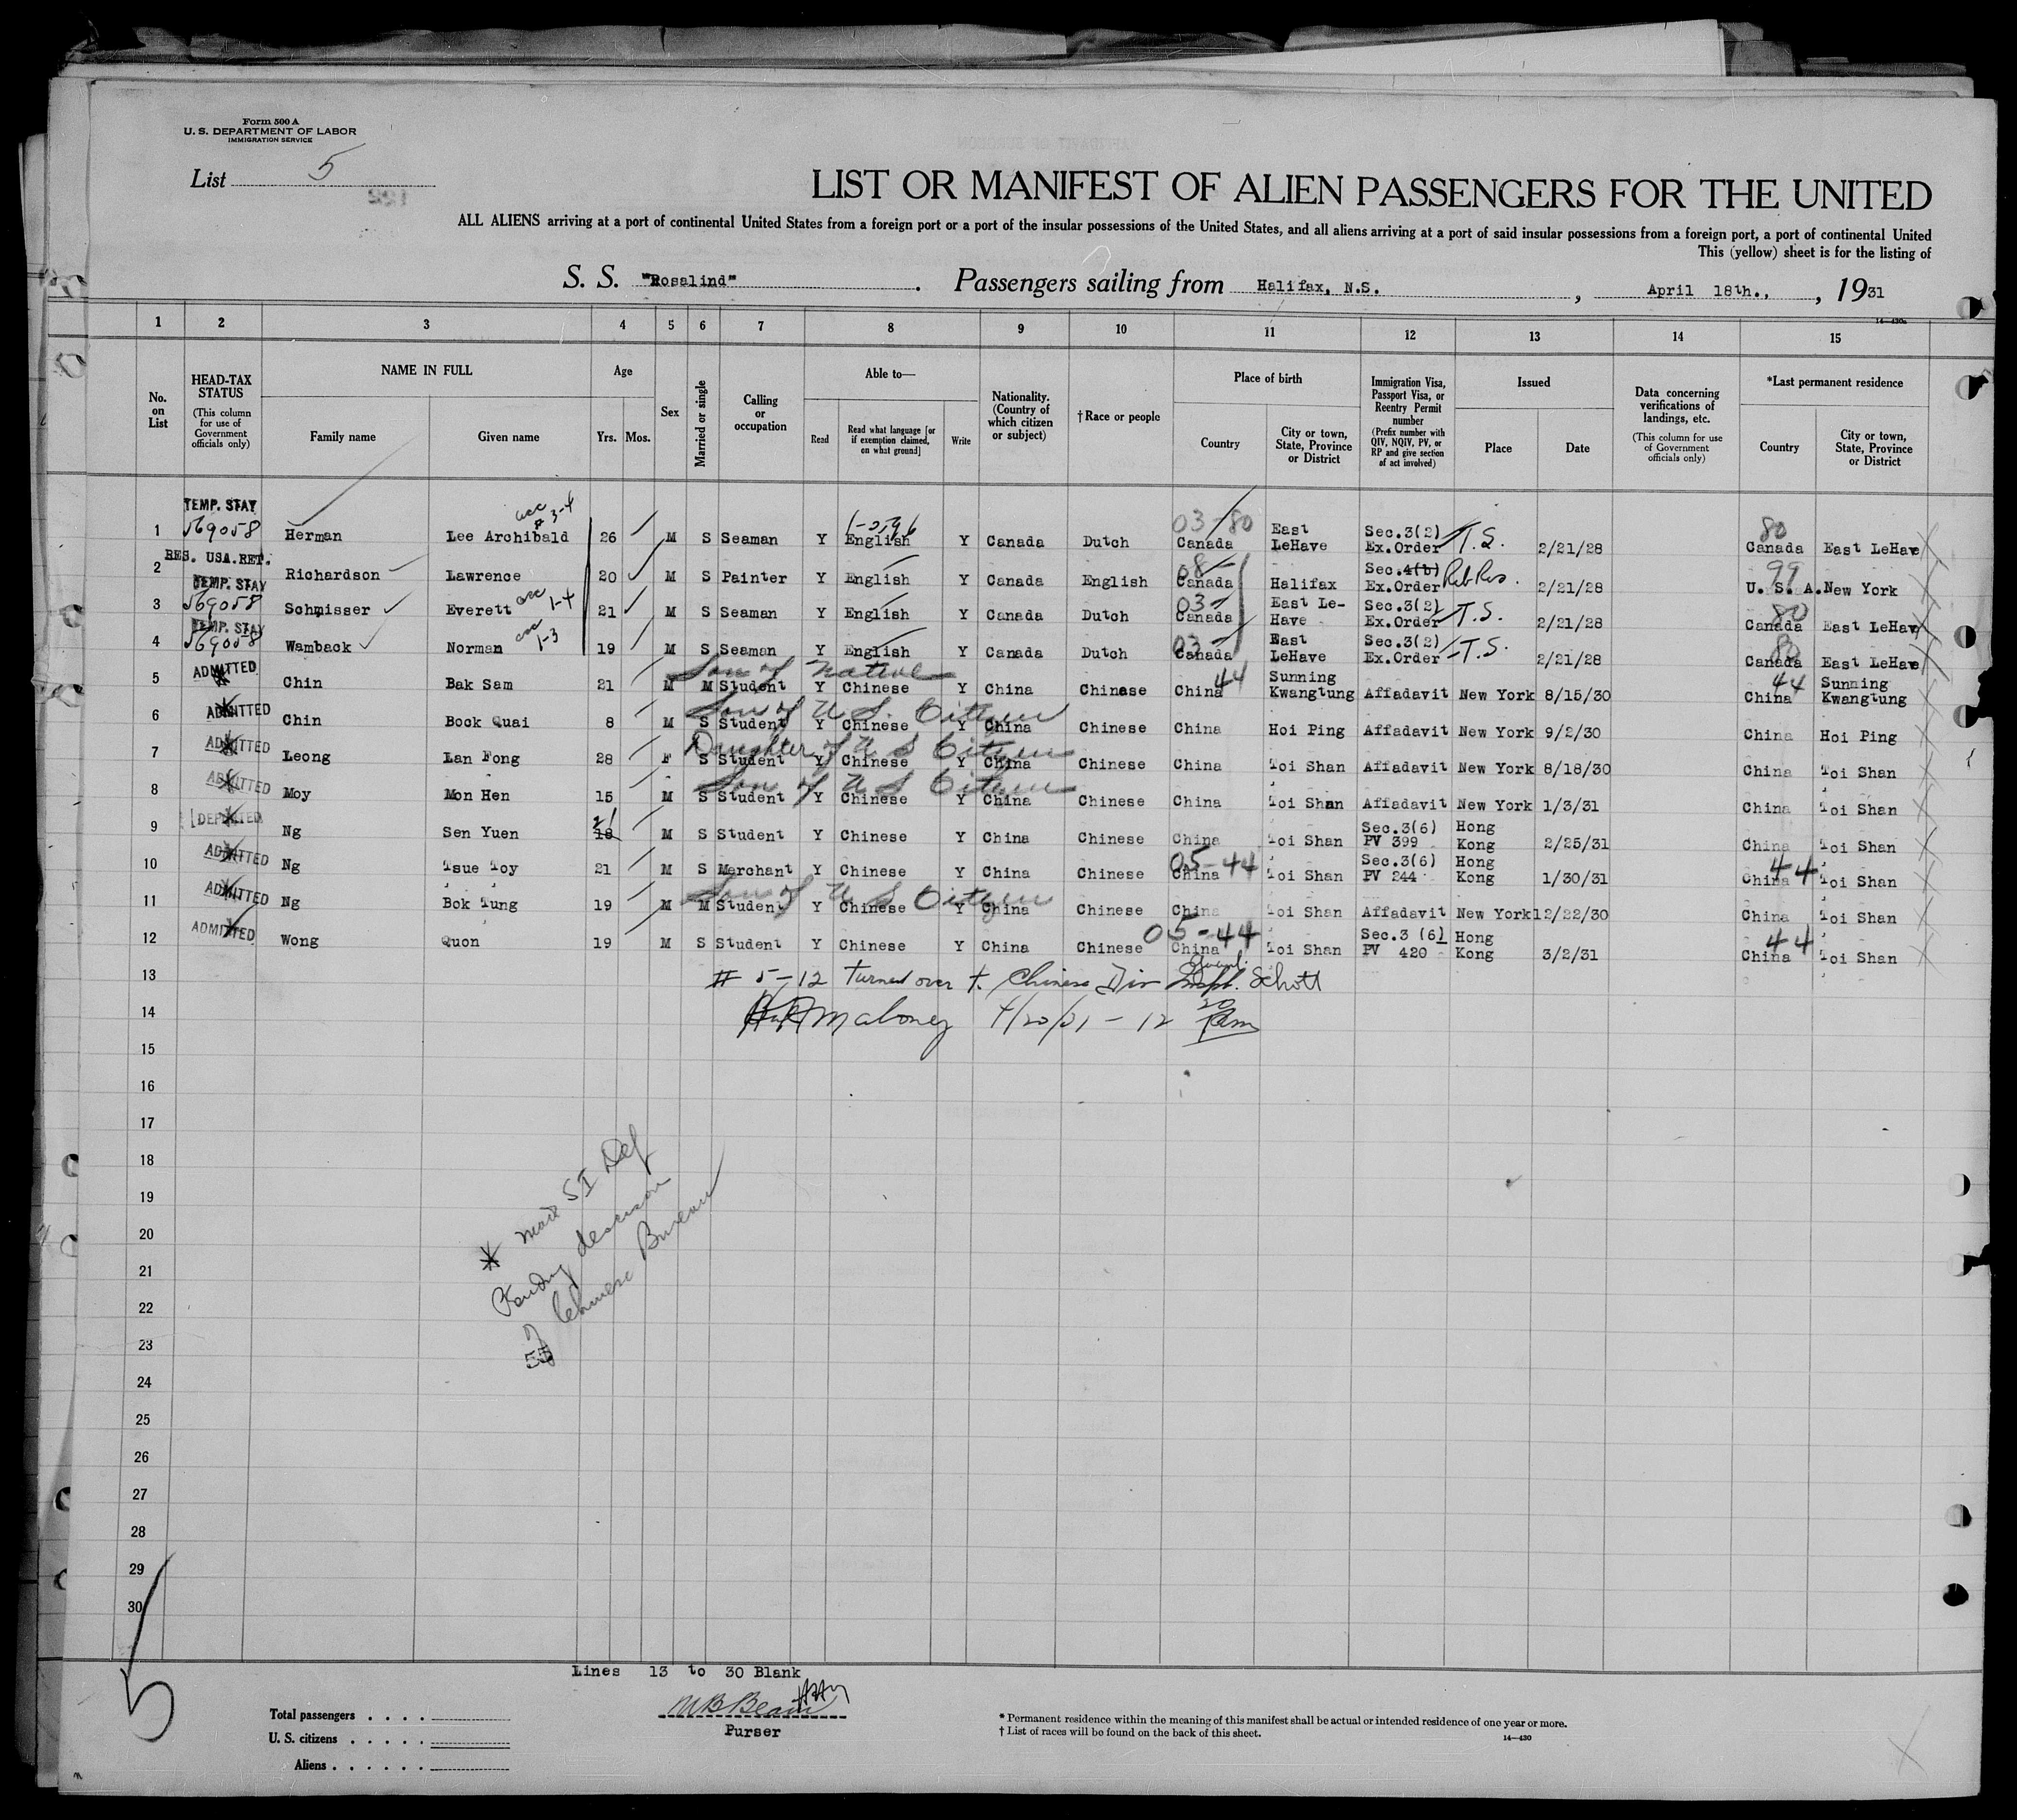 Form 500 A
U. S. DEPARTMENT OF LABOR
IMMIGRATION SERVICE
List 5
LIST OR MANIFEST OF ALIEN PASSENGERS FOR THE UNITED
ALL ALIENS arriving at a port of continental United States from a foreign port or a port of the insular possessions of the United States, and all aliens arriving at a port of said insular possessions from a foreign port, a port of continental United
This (yellow) sheet is for the listing of
S. S. "Rosalind". Passengers sailing from Halifax, N.S., April 18th., , 1931
14—430a
1 2 3 4 5 6 7 8 9 10 11 12 13 14 15
No. on List
HEAD-TAX STATUS (This column for use of Government officials only)
NAME IN FULL
Family name
Given name
Age
Yrs.
Mos.
Sex
Married or single
Calling or occupation
Able to—
Read
Read what language [or if exemption claimed, on what ground]
Write
Nationality. (Country of which citizen or subject)
†Race or people
Place of birth
Country
City or town, State, Province or District
Immigration Visa, Passport Visa, or Reentry Permit number (Prefix number with QIV, NQIV, PV, or RP and give section of act involved)
Issued
Place
Date
Data concerning verifications of landings, etc. (This column for use of Government officials only)
*Last permanent residence
Country
City or town, State, Province or District
1 TEMP. STAY 569058 Herman Lee Archibald acc # 3-4 26 M S Seaman Y English Y Canada Dutch 03-80 Canada East LeHave Sec.3(2) Ex.Order T.S. 2/21/28 80 Canada East LeHave
2 RES. USA.RET. Richardson Lawrence 20 M S Painter Y English Y Canada English 08 Canada Halifax Sec.4(b) Ex.Order 2/21/28 99 U. S. A. New York
3 TEMP. STAY 569058 Schmisser Everett acc 1-4 21 M S Seaman Y English Y Canada Dutch 03 Canada East Le- Have Sec.3(2) Ex.Order T.S. 2/21/28 80 Canada East LeHave
4 TEMP. STAY 569058 Wamback Norman acc 1-3 19 M S Seaman Y English Y Canada Dutch 03 Canada East LeHave Sec.3(2) Ex.Order T.S. 2/21/28 80 Canada East LeHave
Son of Native
5 ADMITTED Chin Bak Sam 21 M M Student Y Chinese Y China Chinese China 44 Sunning Kwangtung Affadavit New York 8/15/30 China 44 Sunning Kwangtung
Son of U S. Citizen
6 ADMITTED Chin Bock Quai 8 M S Student Y Chinese Y China Chinese China Hoi Ping Affadavit New York 9/2/30 China Hoi Ping
Daughter of U S Citizen
7 ADMITTED Leong Lan Fong 28 F S Student Y Chinese Y China Chinese China Toi Shan Affadavit New York 8/18/30 China Toi Shan
Son of U S Citizen
8 ADMITTED Moy Mon Hen 15 M S Student Y Chinese Y China Chinese China Toi Shan Affadavit New York 1/3/31 China Toi Shan
9 DEPORTED Ng Sen Yuen 21 18 M S Student Y Chinese Y China Chinese China Toi Shan Sec.3(6) PV 399 Hong Kong 2/25/31 China Toi Shan
10 ADMITTED Ng Tsue Toy 21 M S Merchant Y Chinese Y China Chinese 05-44 China Toi Shan Sec.3(6) PV 244 Hong Kong 1/30/31 44 China Toi Shan
Son of U S Citizen
11 ADMITTED Ng Bok Tung 19 M M Student Y Chinese Y China Chinese China Toi Shan Affadavit New York 12/22/30 China Toi Shan
12 ADMITTED Wong Quon 19 M S Student Y Chinese Y China Chinese 05-44 China Toi Shan Sec.3 (6) PV 420 Hong Kong 3/2/31 44 China Toi Shan
13 # 5-12 turned over to Chinese Div Inspt. Schott
14 Maloney 4/20/31 - 12 20 Pm
15
16
17
18
19
20
21
22
23
24
25
26
27
28
29
30
* SI Def
Pending decision
of Chinese Bureau
5
Lines 13 to 30 Blank
Purser
Total passengers
U. S. citizens
Aliens
* Permanent residence within the meaning of this manifest shall be actual or intended residence of one year or more.
† List of races will be found on the back of this sheet.
14—430